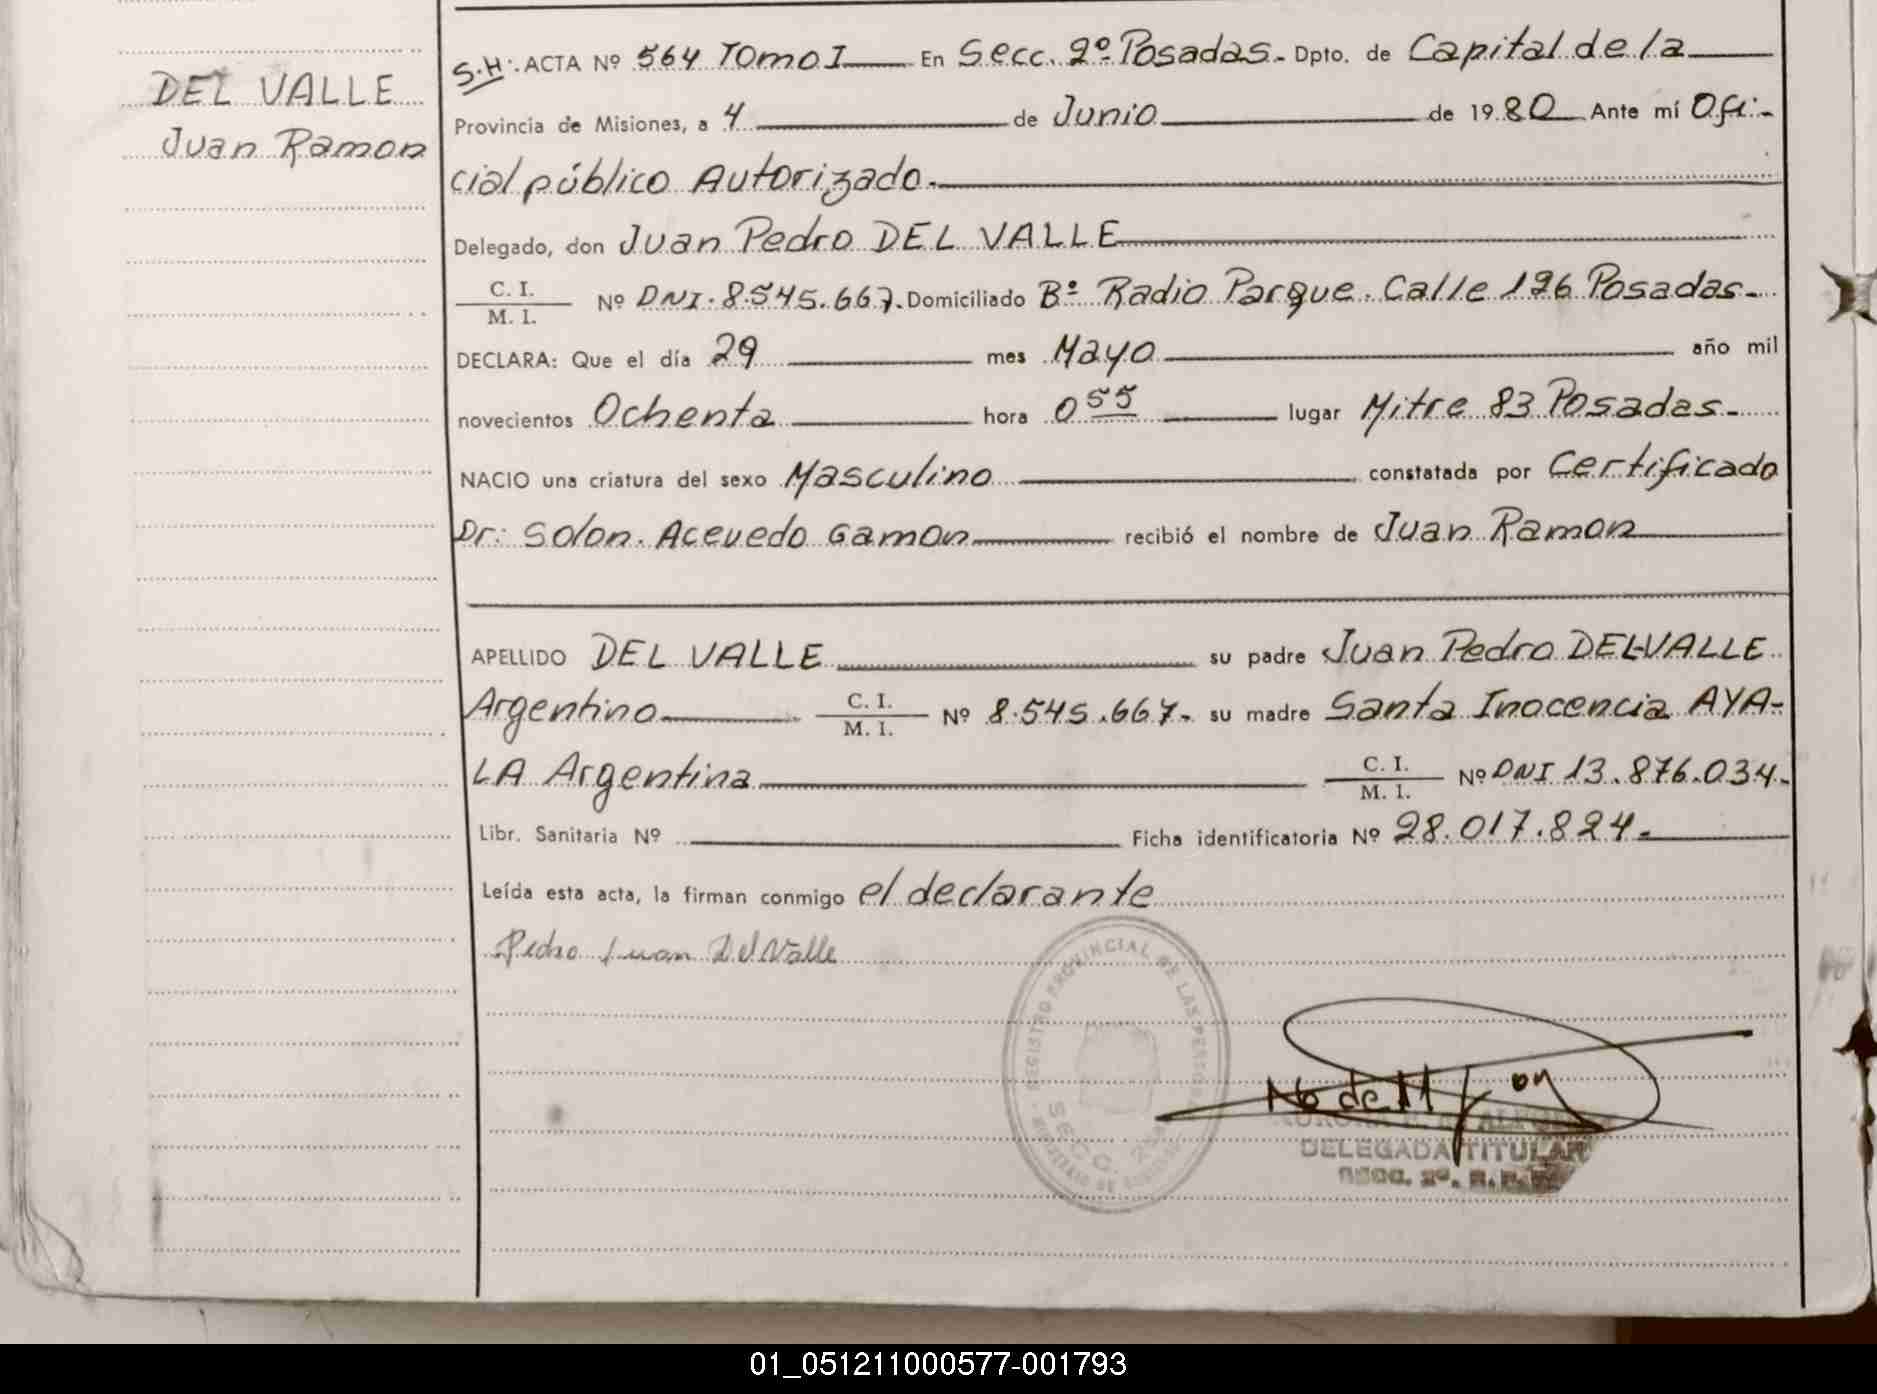 DEL VALLE
Juan Ramon
S.H: ACTA Nº 564 Tomo I En Secc. 2º Posadas. Dpto. de Capital de la
Provincia de Misiones, a 4 de Junio de 1980 Ante mí Ofi-
cial público Autorizado.
Delegado, don Juan Pedro DEL VALLE
C. I.
M. I. Nº DNI. 8.545.667. Domiciliado Bº Radio Parque. Calle 126 Posadas.
DECLARA: Que el día 29 mes Mayo año mil
novecientos Ochenta hora 0 55 lugar Mitre 83 Posadas.
NACIO una criatura del sexo Masculino constatada por Certificado
Dr: Solon. Acevedo Gamon recibió el nombre de Juan Ramon
APELLIDO DEL VALLE su padre Juan Pedro DEL VALLE
Argentino C. I.
M. I. Nº 8.545.667. su madre Santa Inocencia AYA-
LA Argentina C. I.
M. I. Nº DNI 13.876.034.
Libr. Sanitaria Nº Ficha identificatoria Nº 28.017.824.
Leída esta acta, la firman conmigo el declarante
Pedro Juan Del Valle
REGISTRO PROVINCIAL DE LAS PERSONAS
SECC. 2ª
DELEGADA TITULAR
SECC. 2ª. R.P.
01_051211000577-001793